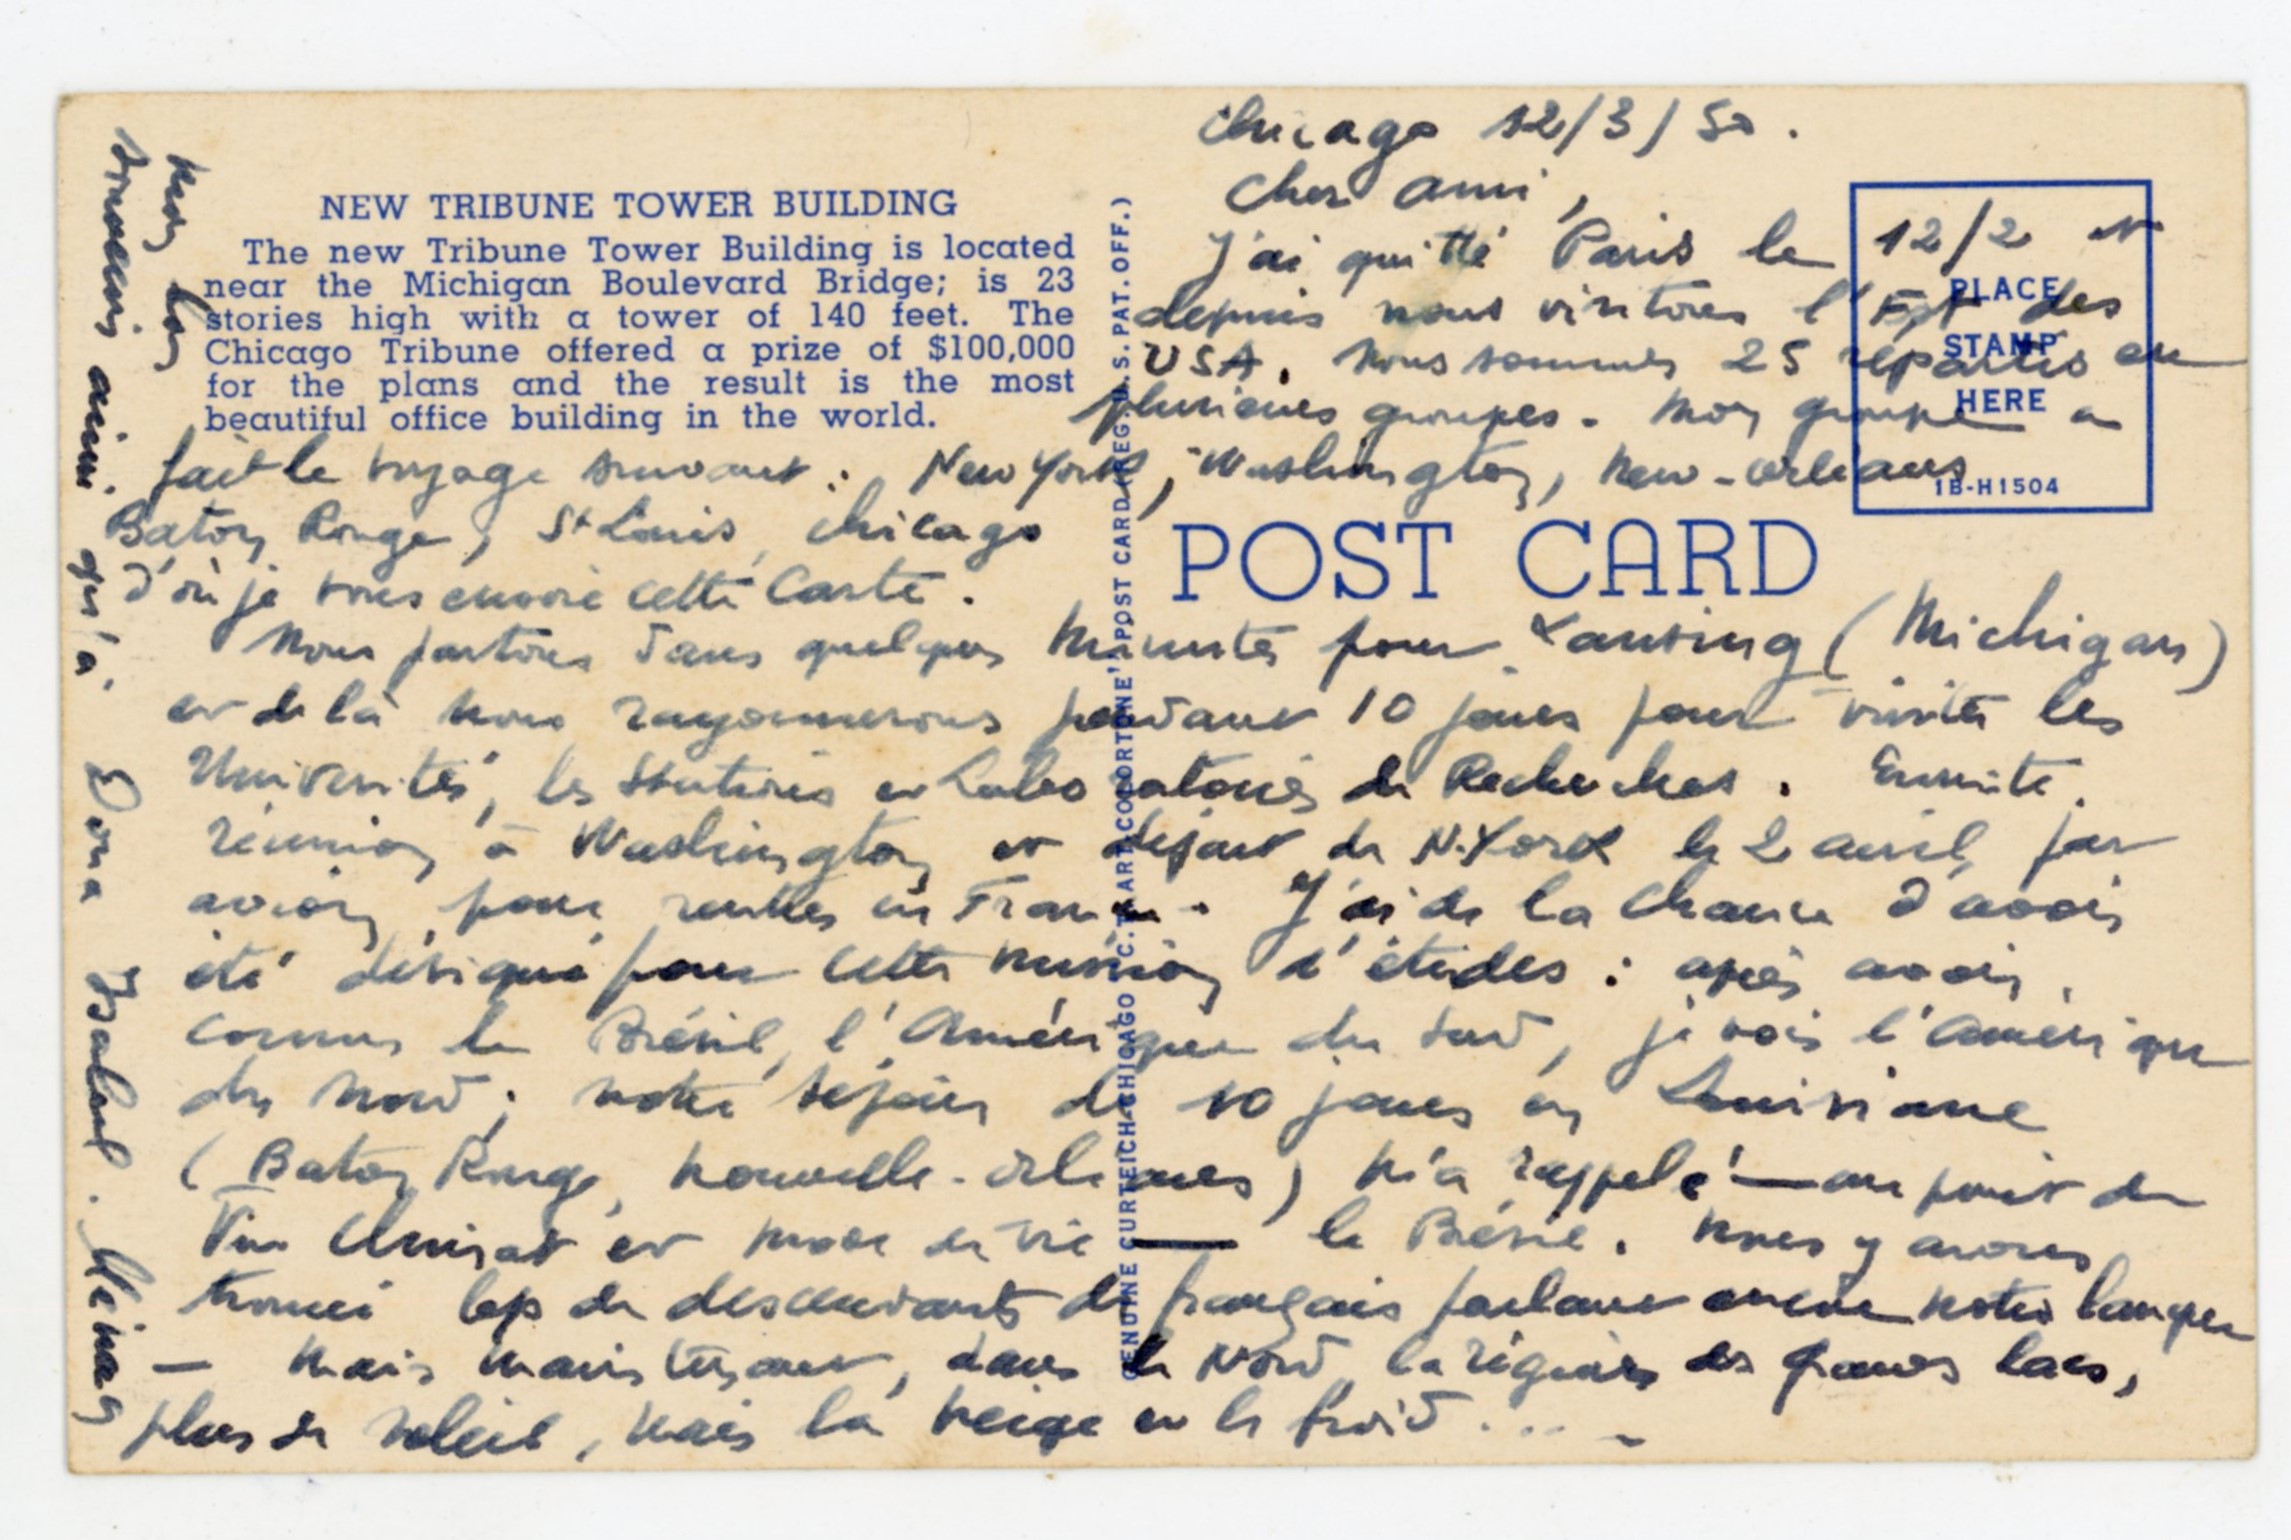 NEW TRIBUNE TOWER BUILDING
The new Tribune Tower Building is located
near the Michigan Boulevard Bridge; is 23
stories high with a tower of 140 feet. The
Chicago Tribune offered a prize of $100,000
for the plans and the result is the most
beautiful office building in the world.
GENUINE CURTEICH-CHICAGO "C.T. ART-COLORTONE" POST CARD (REG. U.S. PAT. OFF.)
PLACE
STAMP
HERE
1B-H1504
POST CARD
Chicago 12/3/50.
Cher ami,
J'ai quitté Paris le 12/2 et
depuis nous visitons l'Est des
USA. Nous sommes 25 répartis en
plusieurs groupes. Mon groupe a
fait le voyage suivant : New York, Washington, New-Orleans
Baton Rouge, St Louis, Chicago
d'où je vous envoie cette carte.
Nous partons dans quelques minutes pour Lansing (Michigan)
et de là nous rayonnerons pendant 10 jours pour visiter les
Universités, les Stations et Laboratoires de Recherches. Ensuite,
réunion à Washington et départ de N.York le 2 avril, par
avion, pour rentrer en France. J'ai de la chance d'avoir
été désigné pour cette mission d'études : après avoir
connu le Brésil, l'Amérique du Sud, je vois l'Amérique
du Nord ; notre séjour de 10 jours en Louisiane
(Baton Rouge, Nouvelle-Orléans) m'a rappelé — au point de
vue climat et mode de vie — le Brésil. Nous y avons
trouvé bcp de descendants de français parlant encore notre langue
— Mais maintenant, dans le Nord, la région des grands lacs,
plus de soleil, mais la neige et le froid . . . .
Mon bon
souvenir ainsi qu'à Dona Isabel.